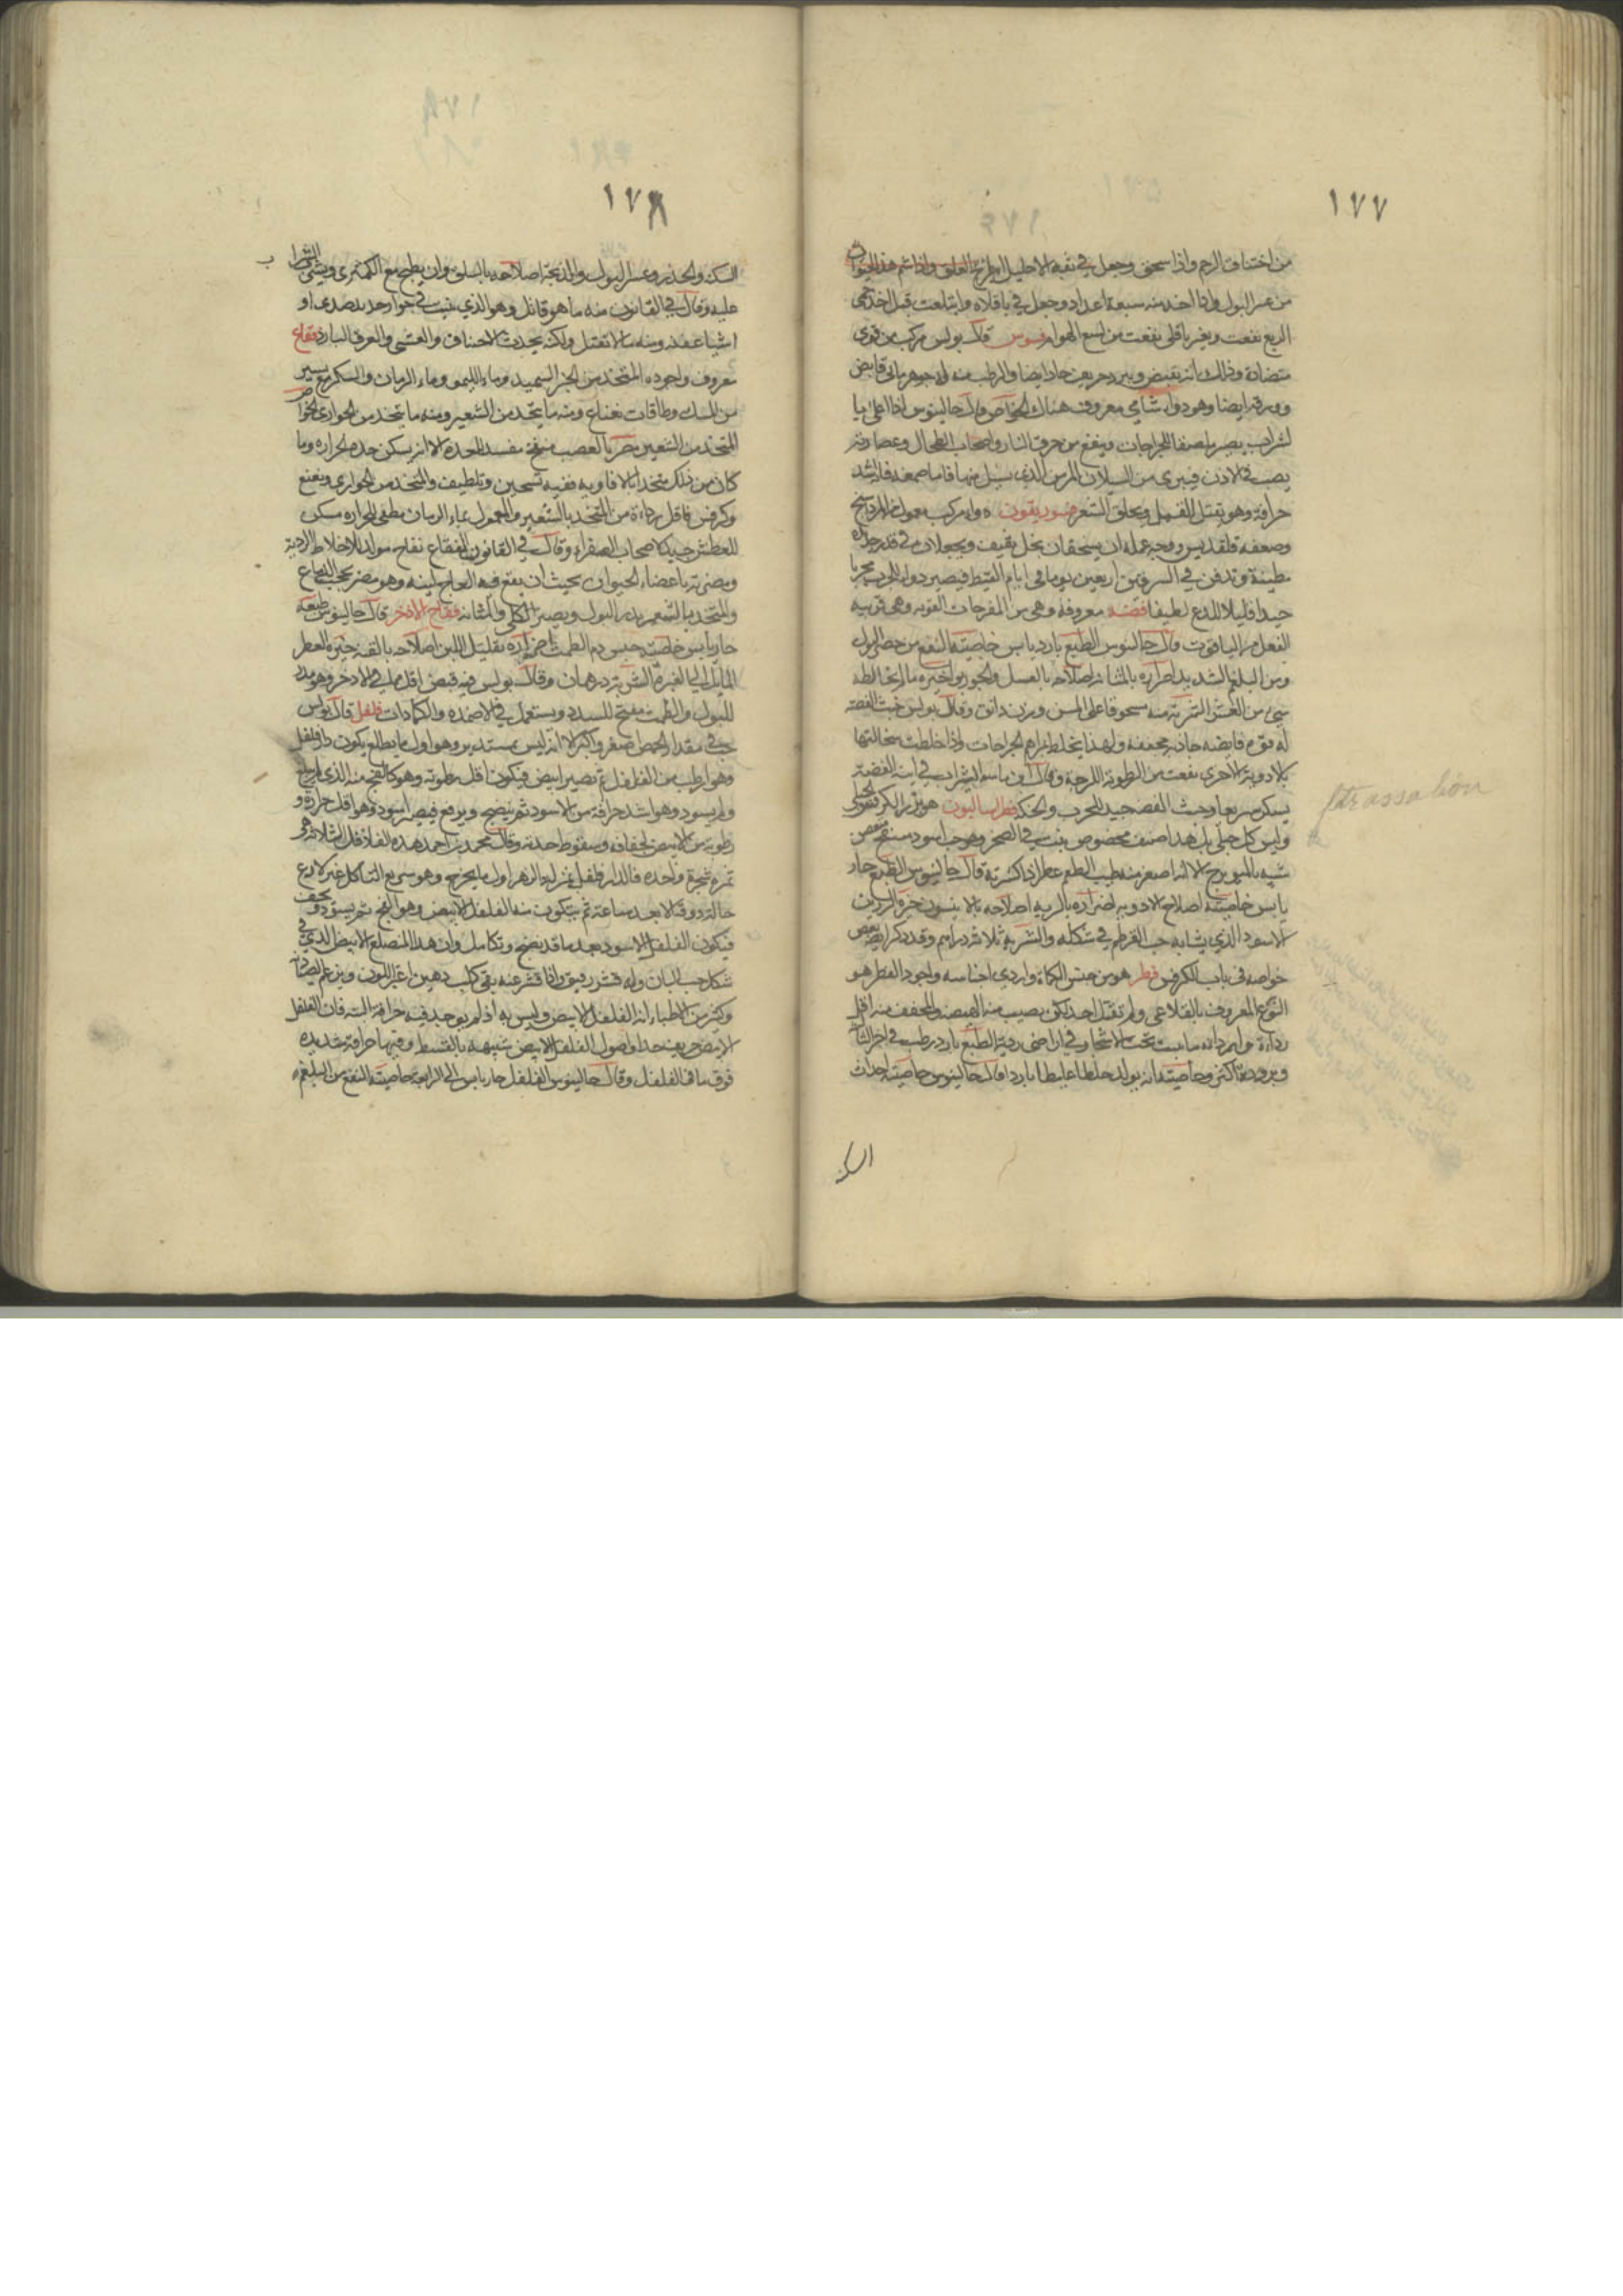 ١٧٧
من اختناق الرحم واذا سحق وجعل في ثقبة الاحليل العلق واذا شم هذا الحيوان
من عسر البول واذا اخذ منه سبعة اعداد وجعل في باقلاه وابتلعت قبل اخذ حمى
الربع نفعت وبغير باقلى نفعت من لسع الهوام فسوس قال بولس مركب من قوى
متضادة وذلك انه يقبض ويبرد حريف حاد ايضا والرطب منه له جوهر مائي قابض
وورقه ايضا وهو دواء شامي معروف هناك الخواص قال جالينوس اذا اغلي
لشراب يصير ملصقا للجراحات وينفع من حرق النار واصحاب الطحال وعصارته
يصب في الاذن فيبرى من السيلان المزمن الذي يسيل منها فاما صمغه فاشد
حرافة وهو يقتل القمل ويحلق الشعر ضوريقون دواء مركب معمول من المرداسنج
وضعفه قلقديس ووجه عمله ان يسحقان بخل ثقيف ويجعلان في قدر جديدة
مطينة وتدفن في السرقين اربعين يوما في ايام القيظ فيصير دواء للجرب مجربا
جيدا قليل اللذع لطيفا فضة معروفة وهي من المفرحات القوية وهي قريبة
الفعل من الياقوت قال جالينوس الطبع بارد يابس خاصيته النفع من حصر البول
ومن البلغم الشديد اضراره بالمثانة اصلاحه بالعسل
شيء من الغش الشربة منه مسحوقا على المسن وزن دانق وقال بولس خبث الفضة
له قوة قابضة جاذبة مجففة ولهذا يخلط بمراهم الجراحات واذا خلطت سحالتها
بالادوية الاخرى نفعت من الرطوبة اللزجة وقال الشراب في انية الفضة
يسكر سريعا وخبث الفضة جيد للجرب والحكة فطراساليون هو بزر الكرفس الجبلي
وليس كل جبلي بل هذا صنف مخصوص ينبت في الصخر وهو حب اسود
شبيه بالميويزج الا انه اصغر منه طيب الطعم عطر اذا كسرته قال جالينوس الطبع حار
يابس خاصيته اصلاح الادوية اضراره بالرية اصلاحه بالانيسون
الاسود الذي يشابه حب القرطم في شكله والشربة ثلاثة دراهم وقد ذكرنا بعض
خواصه في باب الكرفس فطر هو من جنس الكماة واردي اجناسه واجود الفطر هو
النوع المعروف بالقلاعي ولم تقتل احدا لكن يصيب منه الهيضة والمجفف منه اقل
رداءة واردا ما ينبت تحت الاشجار وفي اراضي ردية الطبع بارد رطب في اخر الثالثة
وبرودته اكثر وخاصيته انه يولد خلطا غليظا باردا قال جالينوس خاصيته احداث
السكتة
ftrassalion
١٧٨
السكتة والخدر وعسر البول والذبحة اصلاحه بالسلق وان يطبخ مع الكمثرى ويشرب الشراب
عليه وقال في القانون منه ما هو قاتل وهو الذي ينبت في جوار حديد صدى او
اشيا عفنة ومنه ما لا تقتل ولكنه يحدث الاختناق والغشي والعرق البارد فقاع
معروف واجوده المتخذ من الخبز السميد وماء الليمو وماء الرمان والسكر مع يسير
من المسك وطاقات نعناع ومنه ما يتخذ من الشعير ومنه ما يتخذ من الحواري الخواص
المتخذ من الشعير مضر بالعصب منفخ مفسد للمعدة الا انه يسكن حدة الحرارة وما
كان من ذلك متخذا بالافاويه ففيه تسخين وتلطيف والمتخذ من الحواري ونعنع
وكرفس فاقل رداءة من المتخذ بالشعير والمعمول بماء الرمان مطفي للحرارة مسكن
للعطش جيد لاصحاب الصفراء وقال في القانون الفقاع نفاخ مولد للاخلاط الردية
ومضرته باعضاء الحيوان بحيث ان ينقع فيه العاج لينه وهو مضر بحجب الدماغ
والمتخذ بالشعير يدر البول ويضر الكلى والمثانة فقاح الاذخر قال جالينوس طبعه
حار يابس خاصيته حبس دم الطمث اضراره بتقليل اللبن اصلاحه خيره العطر
المايل الى الغبرة الشربة درهمان وقال بولس فيه قبض اقل مما في الاذخر وهو مدر
للبول والطمث مفتح للسدد ويستعمل في الاضمدة والكمادات فلفل قال بولس
حب في مقدار الحمص اصغر واكبر الا انه ليس بمستدير وهو اول ما يطلع يكون دارفلفل
وهو ارطب من الفلفل ثم تصير ابيض فيكون اقل رطوبة وهو كالفج منه الذي لم ينضج
ولم يسود وهو اشد حرافة من الاسود ثم ينضج ويرفع فيصير اسود وهو اقل حرارة و
رطوبة من الابيض لجفافه وسقوط حدته وقال محمد بن احمد هذه الفلافل الثلاثة هي
ثمرة شجرة واحدة فالدارفلفل بمنزلة الزهر اول ما يخرج وهو سريع التاكل غير لاذع
حالة ذوقه الا بعد ساعة ثم يتكون منه الفلفل الابيض وهو الفج ثم يسود ويجف
فيكون الفلفل الاسود بعد ما قد نضج وتكامل وان هذا المتصلع الابيض الذي في
شكل حب البان وله قشر رقيق واذا قشر عنه بقي كلب دهين اغبر اللون ويزعم الصيادلة
وكثير من الاطباء انه الفلفل الابيض وليس به اذ لم يوجد فيه حرافة البتة فان الفلفل
الابيض حريف جدا واصول الفلفل الابيض شبيهة بالقسط وفيها حرافة شديدة
فوق ما في الفلفل وقال جالينوس الفلفل حار يابس الى الرابعة خاصيته النفع من البلغم